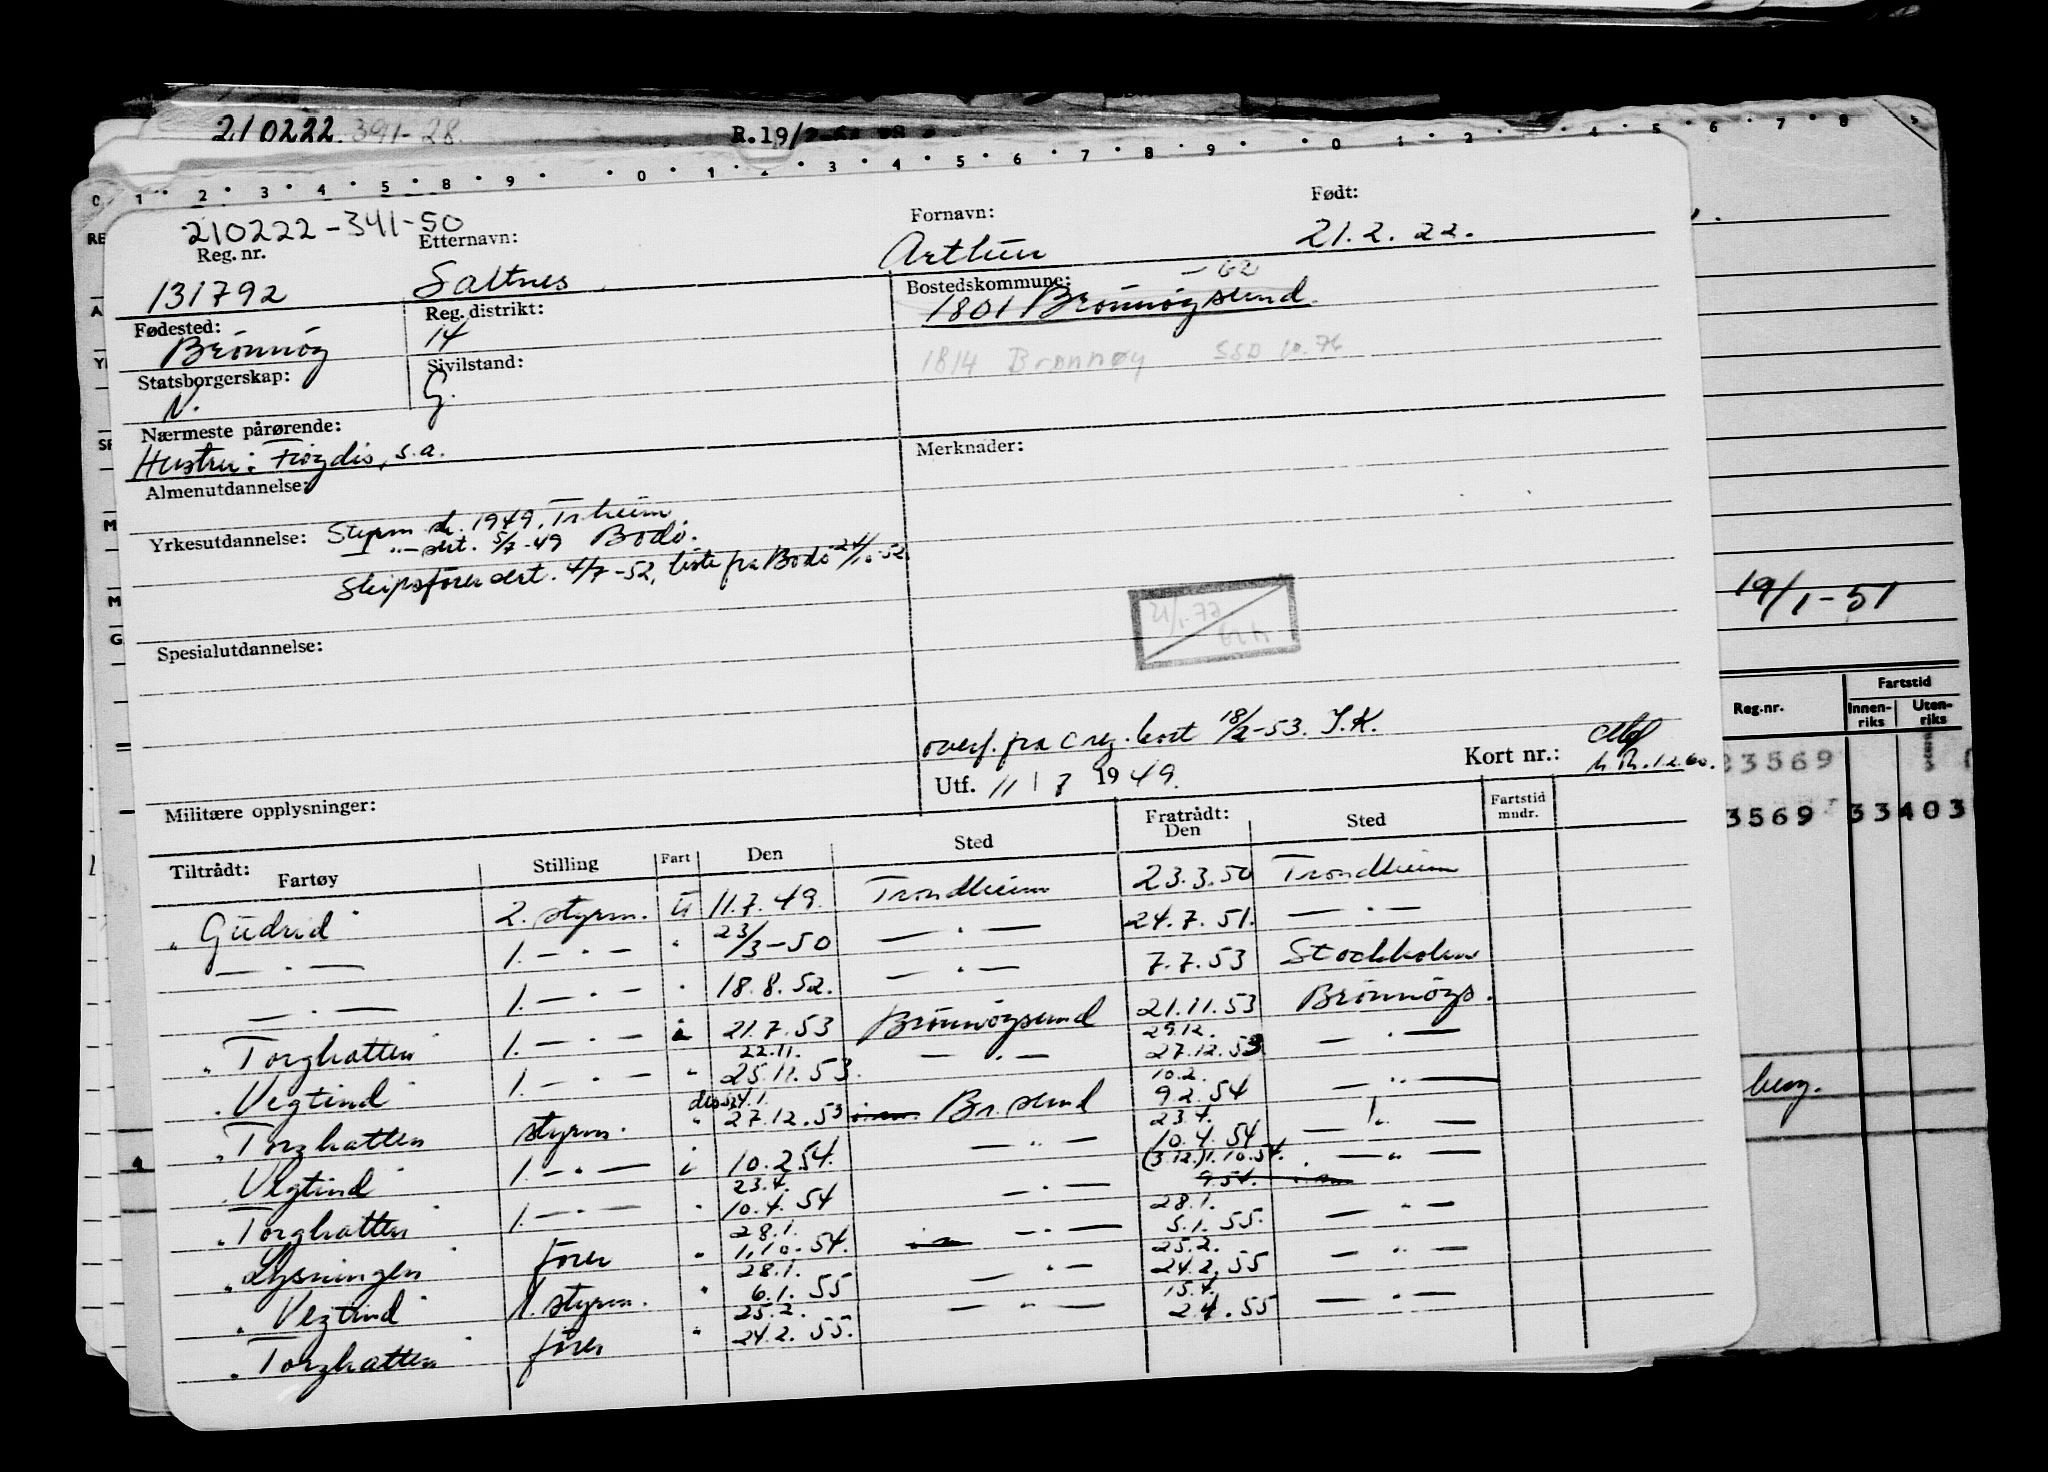 210222.391-28. R.19/
0 1 2 3 4 5 8 9 0 1 2 3 4 5 6 7 8 9 0 1 2 4 5 6 7 8
210222-341-50
Reg. nr. Etternavn: Fornavn: Født:
131792 Saltnes Arthur 21.2.22.
Fødested: Reg. distrikt: Bostedskommune: -62
Brönnöy 14 1801 Brönnöysund.
Statsborgerskap: Sivilstand: 1814 Brønnøy SSD 10.76
N. G.
Nærmeste pårørende: Merknader:
Hustru: Frøydis, s.a.
Almenutdannelse:
Yrkesutdannelse: Styrm sk. 1949. Trheim
-"- sert. 5/7-49 Bodö.
Skipsförersert. 4/7-52, liste fra Bodö 24/10-52
19/1-51
21/1.72
Spesialutdannelse:
overf. fra c reg. kort 18/2-53. I.K.
Utf. 11/7 1949. Kort nr.:
Militære opplysninger:
Reg.nr. Fartstid
Innenriks Utenriks
23569
3569 33403
Tiltrådt: Fartøy Stilling Fart Den Sted Fratrådt: Den Sted Fartstid mndr.
"Gudrid" 2. styrm. u 11.7.49. Trondheim 23.3.50 Trondheim
— " — 1. — " — " 23/3-50 — " — 24.7.51. — " —
— " — 1. — " — " 18.8.52. — " — 7.7.53 Stockholm
"Torghatten" 1. — " — i 21.7.53 Brönnöysund 21.11.53 Brönnöys.
22.11. 29.12.
"Vegtind" 1. — " — " 25.11.53. — " — 27.12.53 — " —
24.1. 10.2.
"Torghatten" styrm. " 27.12.53 Br.sund 9.2.54 — " —
23.4.
"Vegtind" 1. — " — i 10.2.54. — " — 10.4.54 — " —
23.4. (3.12.) 1.10.54.
"Torghatten" 1. — " — " 10.4.54 — " — 9.54. — " —
28.1. 28.1.
"Lysningen" förer " 1.10.54. — " — 5.1.55. — " —
28.1. 25.2.
"Vegtind" 1. styrm. " 6.1.55 — " — 24.2.55 — " —
25.2. 15.4.
"Torghatten" förer " 24.2.55. — " — 2.4.55 — " —
berg.